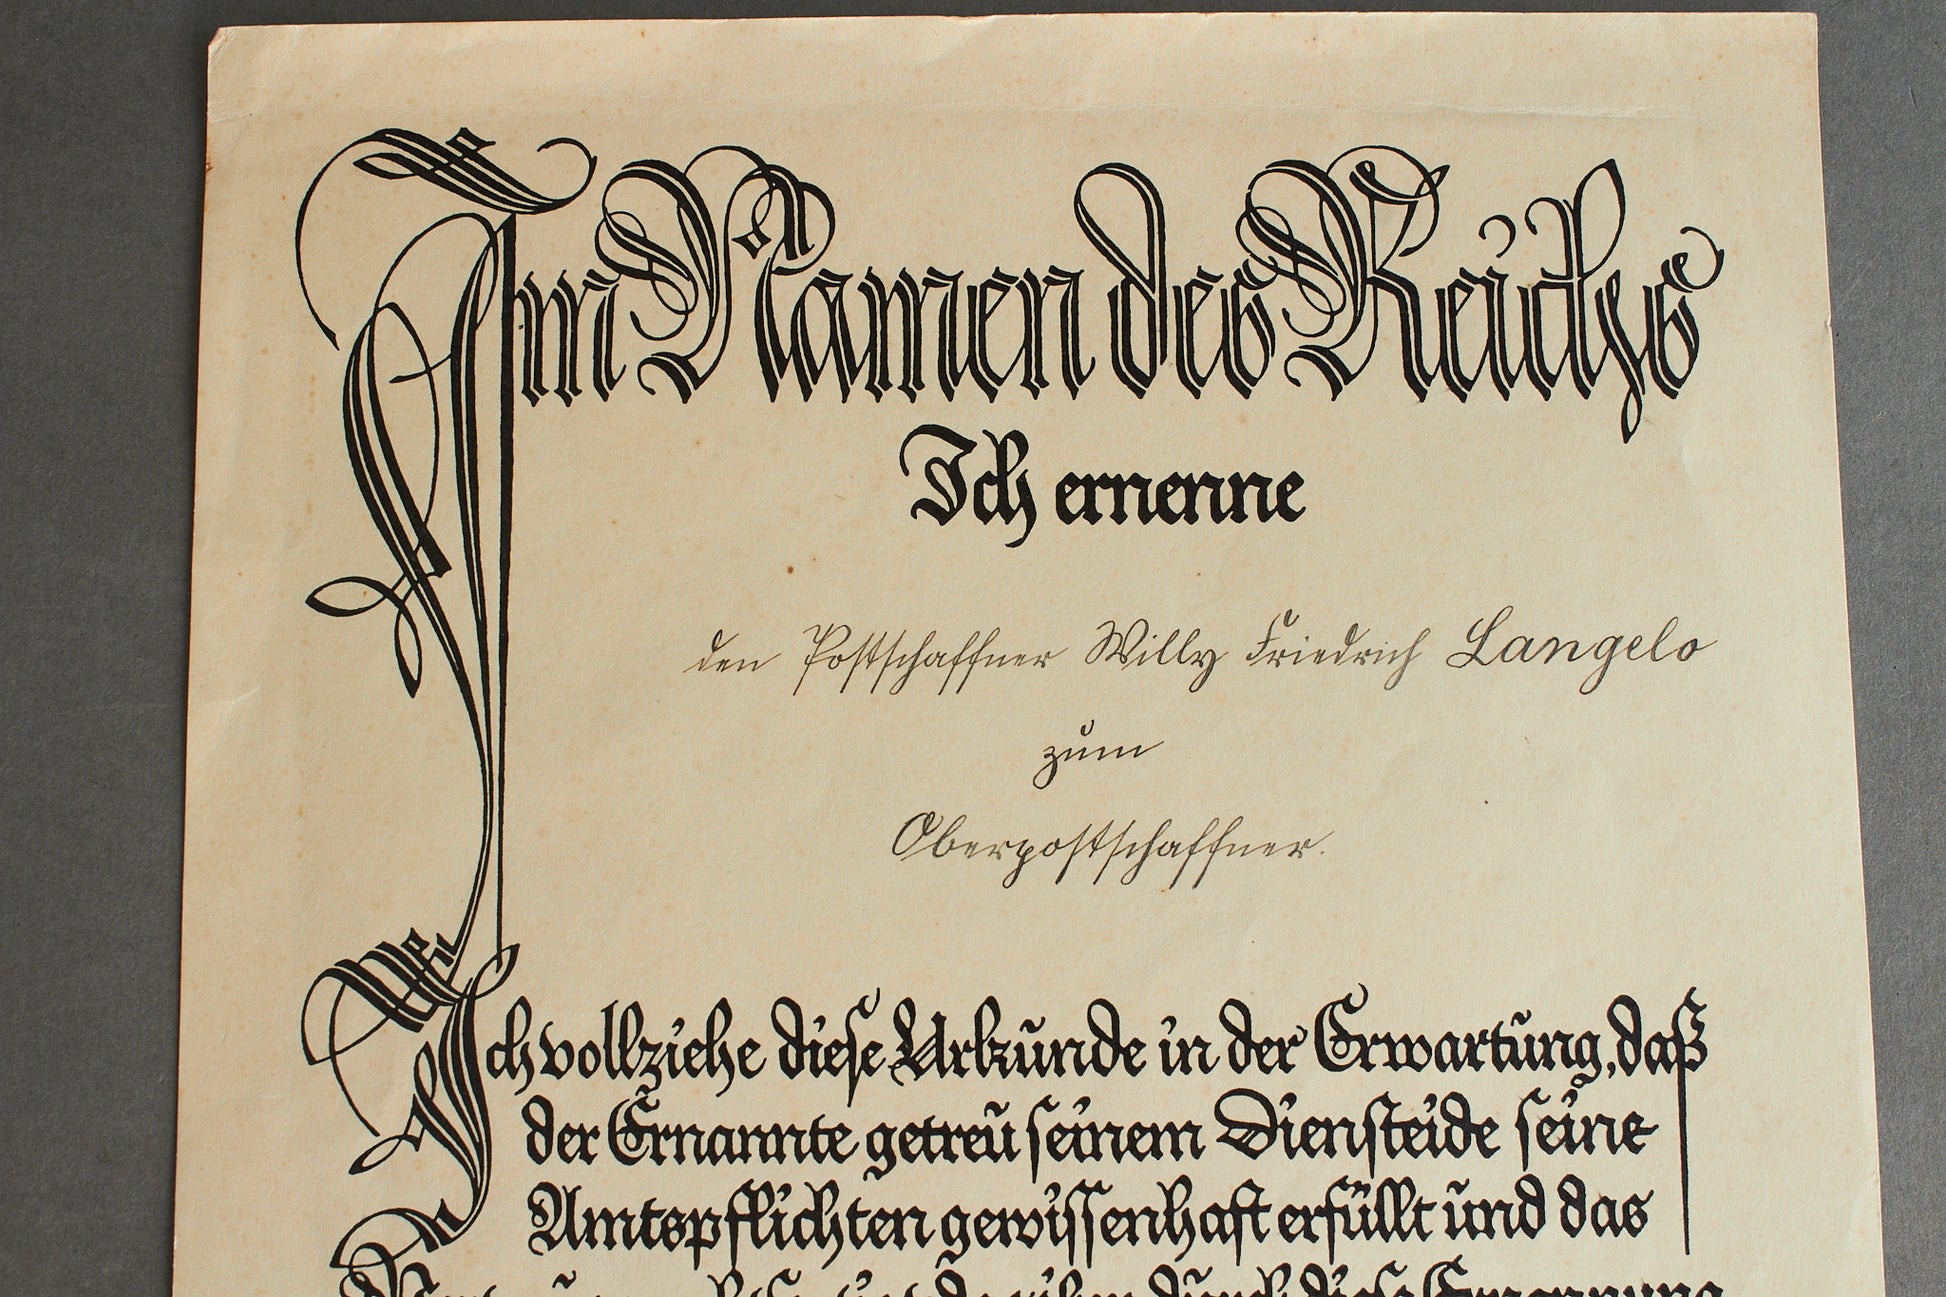 Im Namen des Reichs
Ich ernenne
den Postschaffner Willy Friedrich Langelo
zum
Oberpostschaffner.
Ich vollziehe diese Urkunde in der Erwartung, daß
der Ernannte getreu seinem Diensteide seine
Amtspflichten gewissenhaft erfüllt und das
durch diese Ernennung